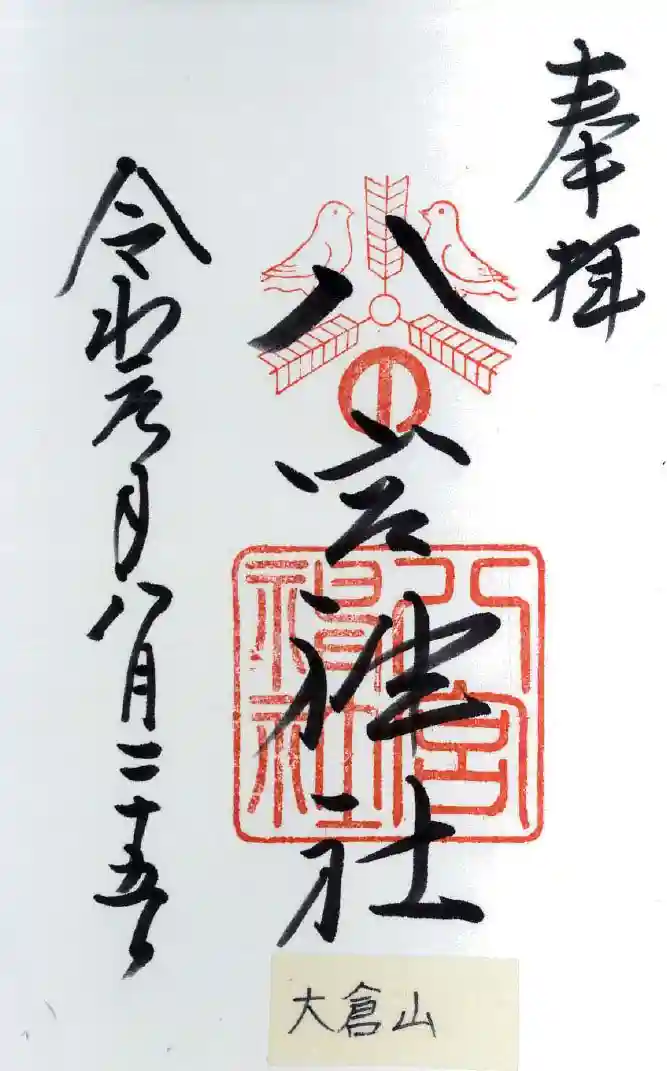 奉拝
八宮神社
八宮
神社
令和元年八月二十五日
大倉山